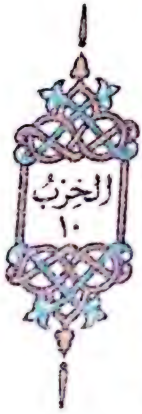 الحِزْبُ
١٠